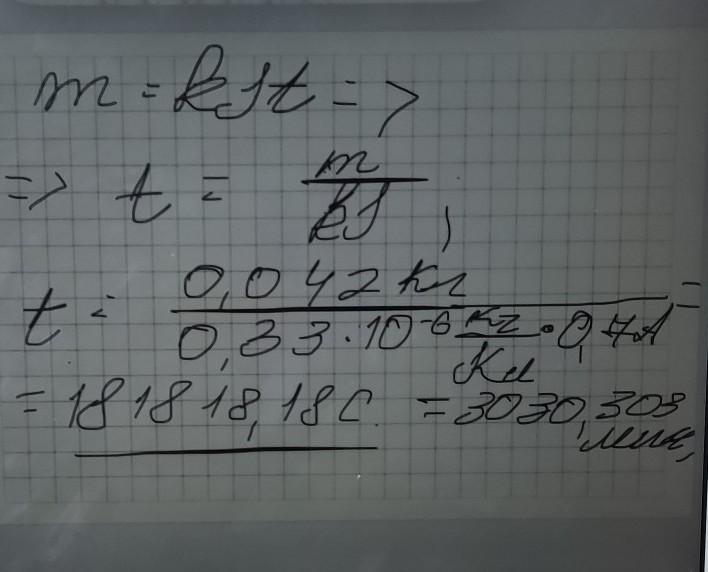 m = kIt =>
=> t = m/kI,
t = 0,042 кг / 0,33·10^-6 кг/Кл · 0,7А =
= 181818,18 С = 3030,303 мин,